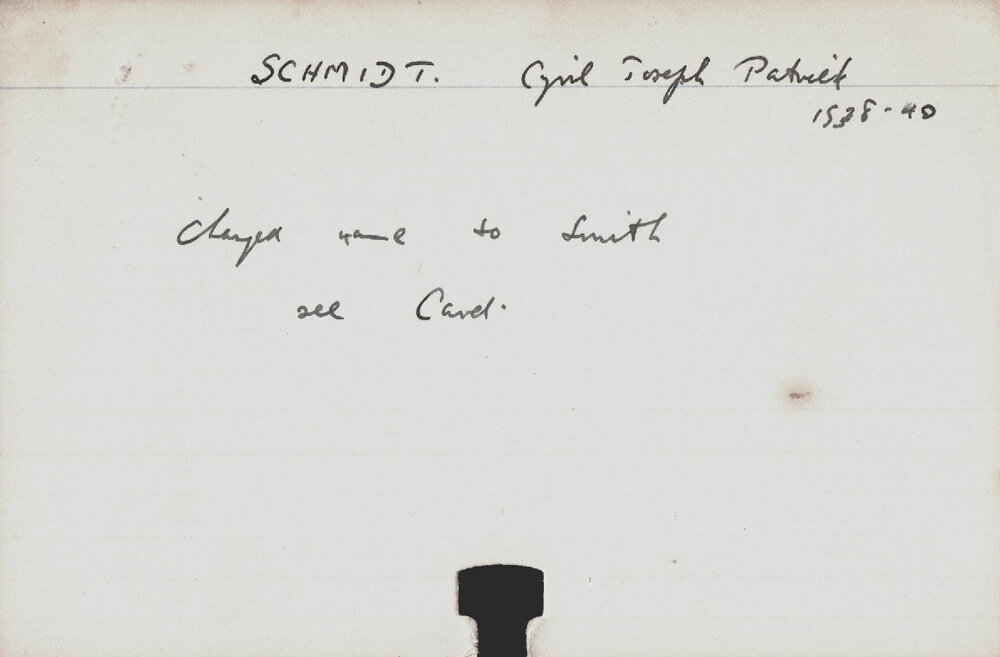 SCHMIDT. Cyril Joseph Patrick
1938-40
changed name to Smith
see Card.